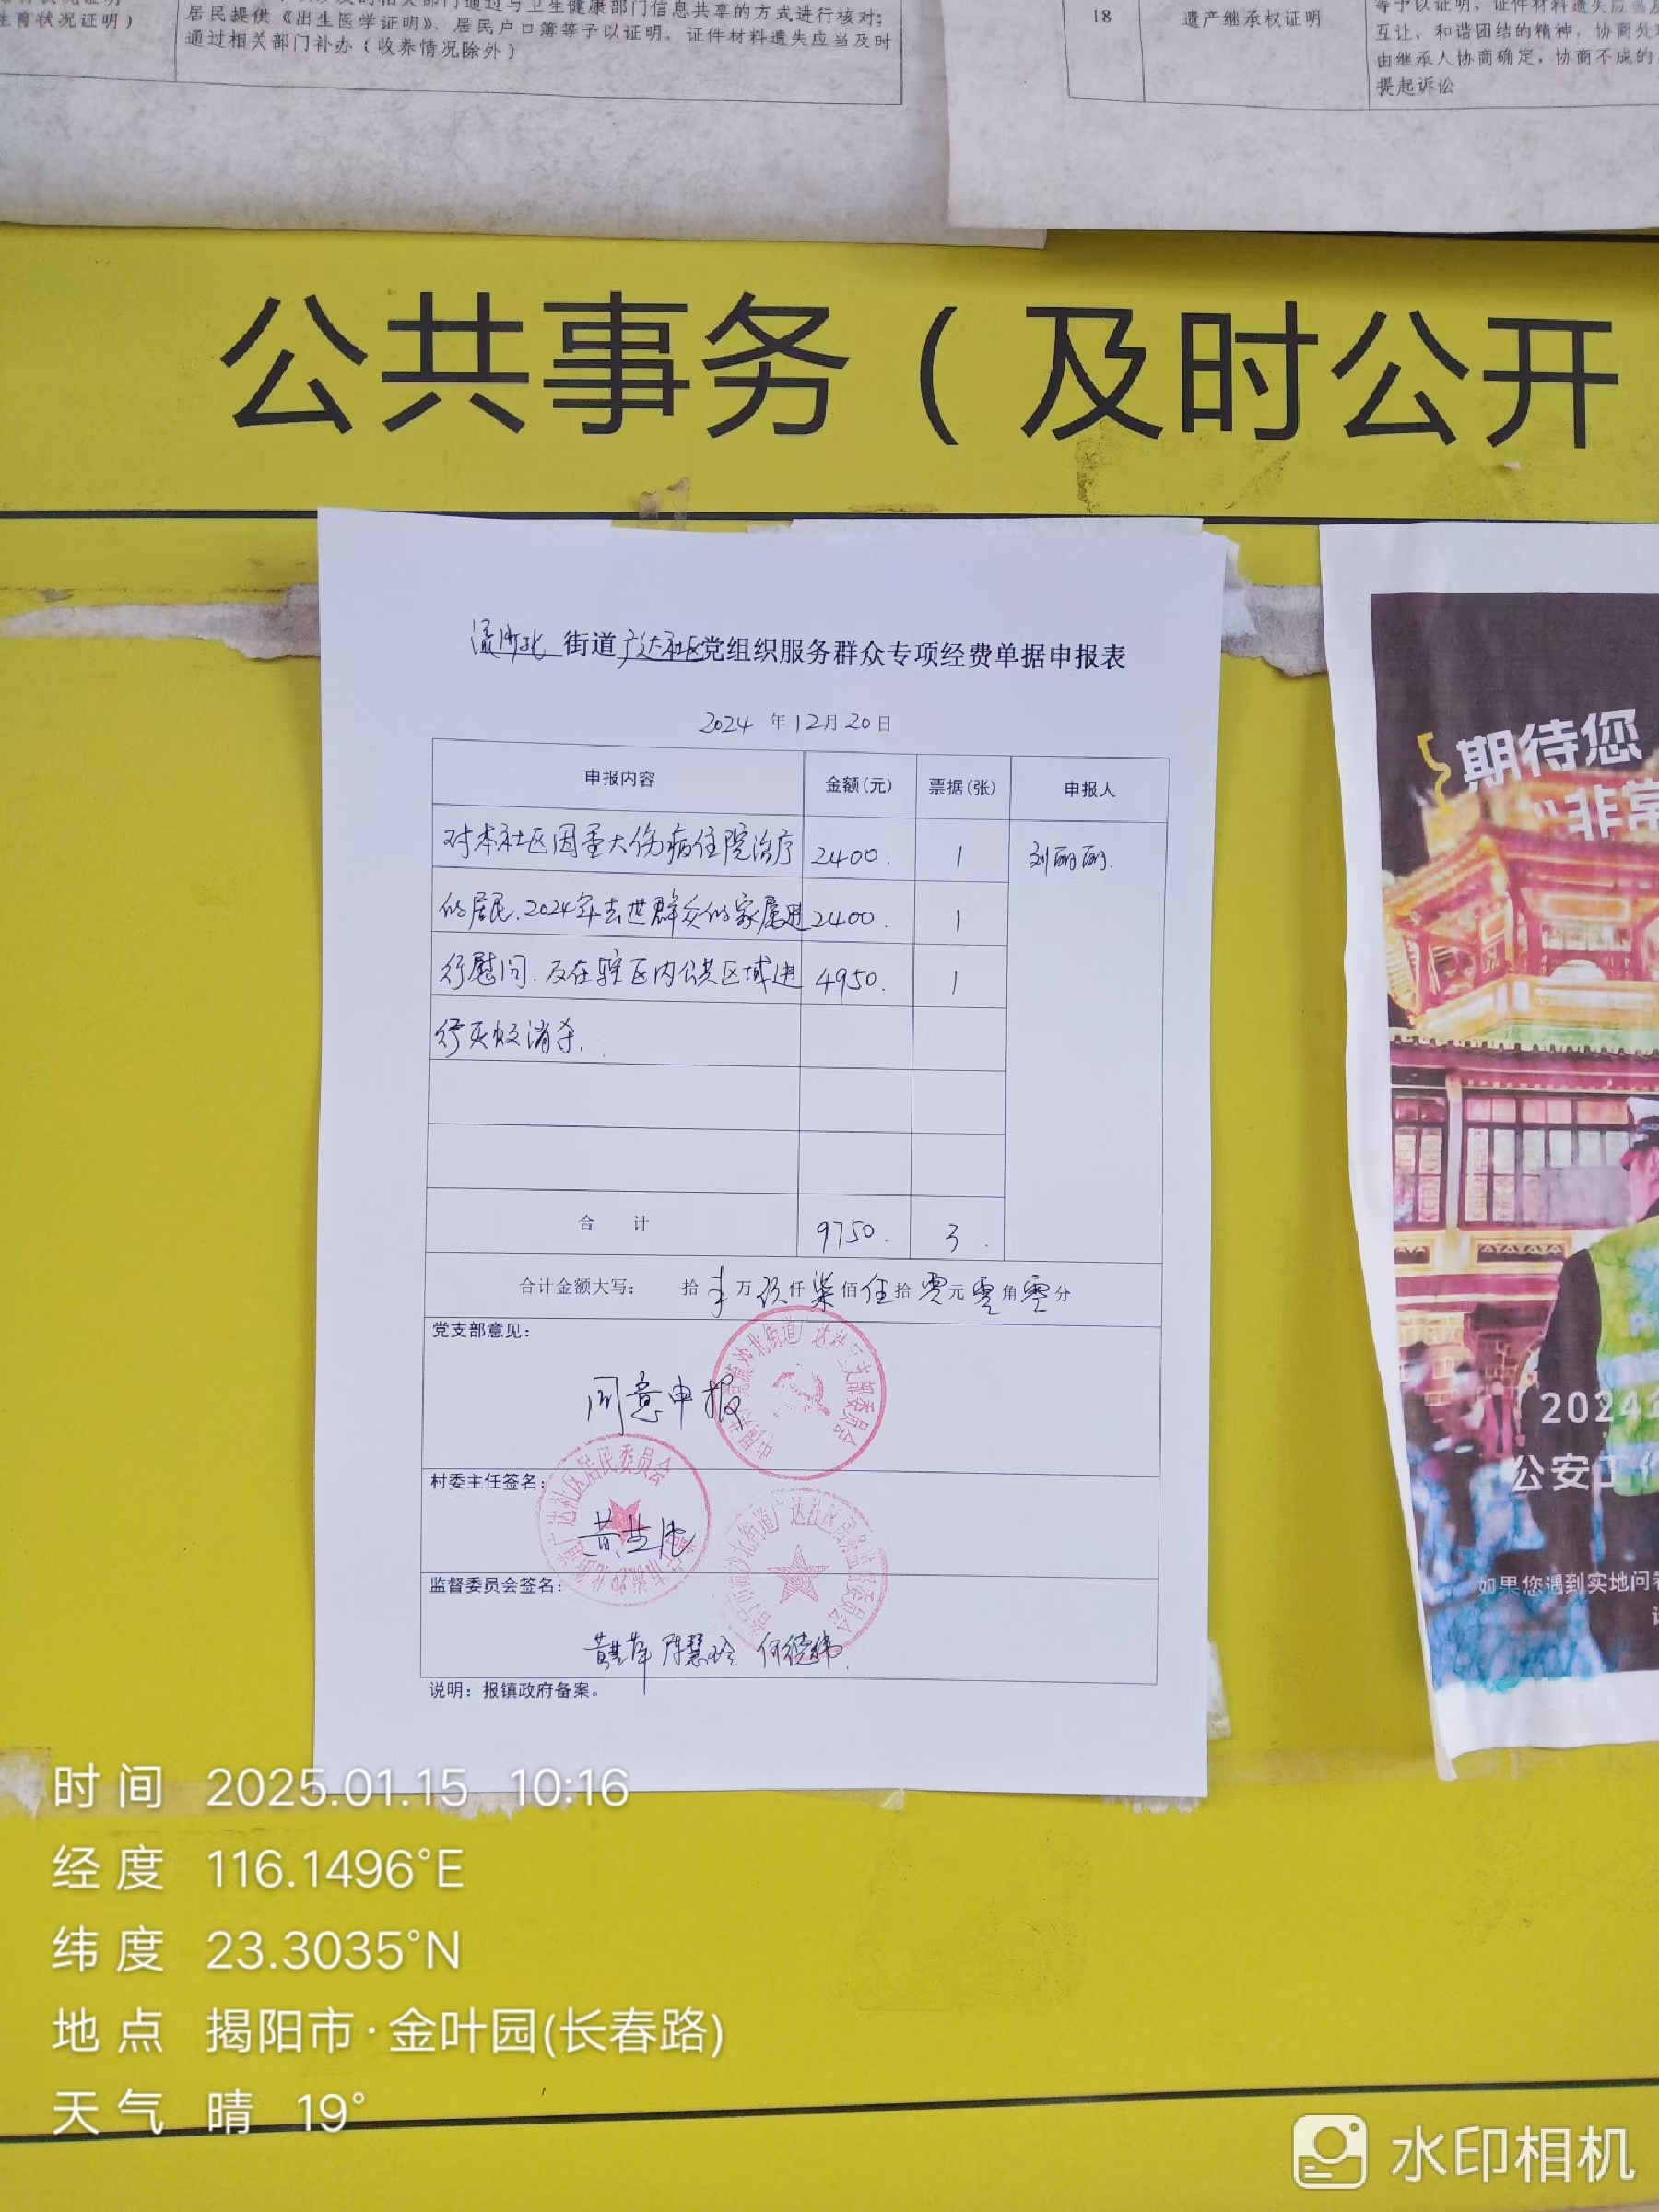 生育状况证明）
的相关部门通过与卫生健康部门信息共享的方式进行核对；
居民提供《出生医学证明》、居民户口簿等予以证明，证件材料遗失应当及时
通过相关部门补办（收养情况除外）
18
遗产继承权证明
等予以证明，证件材料遗失应当及
互让、和谐团结的精神，协商处
由继承人协商确定，协商不成的
提起诉讼
公共事务（及时公开
流沙北 街道广达社区党组织服务群众专项经费单据申报表
2024 年12月20日
申报内容 金额(元) 票据(张) 申报人
对本社区因重大伤病住院治疗 2400. 1 刘丽丽.
的居民、2024年去世群众的家属进 2400. 1
行慰问.及在辖区内公共区域进 4950. 1
行灭蚊消杀.
合 计 9750. 3
合计金额大写： 拾 万玖仟柒佰伍拾零元零角零分
党支部意见：
同意申报
中国共产党 流沙北街道广达社区支部委员会
村委主任签名：
广达社区居民委员会
流沙北街道广达社区居务监督委员会
监督委员会签名：
陈慧玲 何德伟
说明：报镇政府备案。
期待您
“非常
2024年
公安工作
如果您遇到实地问卷
时间 2025.01.15 10:16
经度 116.1496°E
纬度 23.3035°N
地点 揭阳市·金叶园(长春路)
天气 晴 19°
水印相机